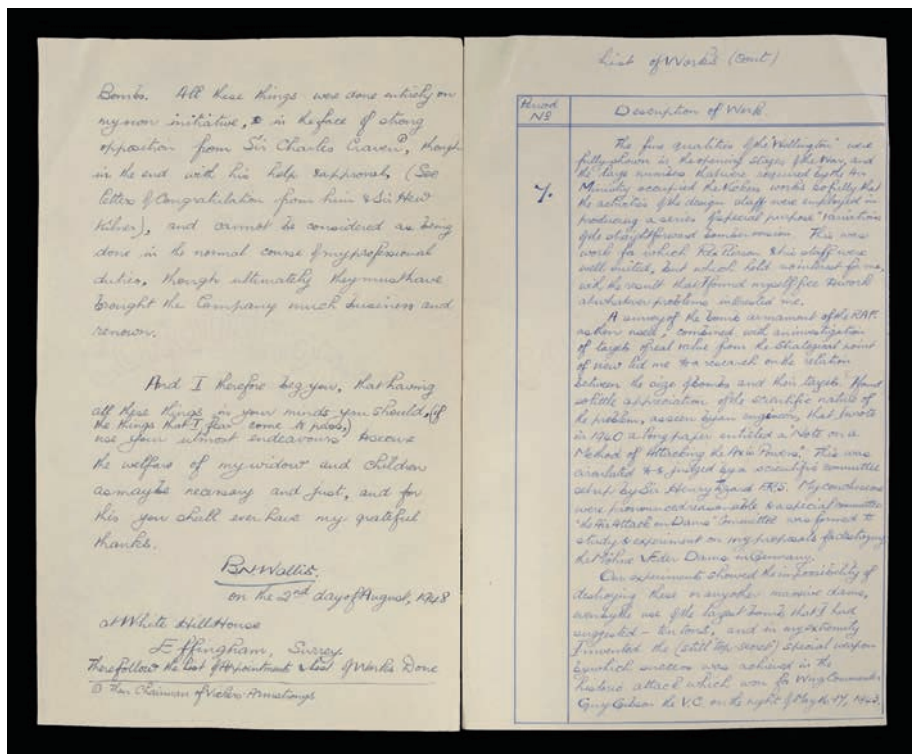 Bombs. All these things were done entirely on
my own initiative, & in the face of strong
opposition from Sir Charles Craven⁽¹⁾, though
in the end with his help & approval, (See
letter of Congratulation from him & Sir Hew
Kilner), and cannot be considered as being
done in the normal course of my professional
duties, though ultimately they must have
brought the Company much business and
renown.
And I therefore beg you, that having
all these things in your minds you should, (if
the things that I fear come to pass,)
use your utmost endeavours to secure
the welfare of my widow and children
as may be necessary and just, and for
this you shall ever have my grateful
thanks.
B.N. Wallis.
on the 2nd day of August, 1948
at White Hill House
Effingham, Surrey.
There follow the list of Appointments & List of Works Done
(1) Then Chairman of Vickers Armstrongs
List of Works (cont)
Period
No
Description of Work.
7.
The fine qualities of the "Wellington" were
fully shown in the opening stages of the War, and
the large numbers that were required by the Air
Ministry occupied the Vickers works so fully that
the activities of the design staff were employed in
producing a series of special purpose "variations"
of the straightforward bomber version. This was
work for which Rex Pierson & his staff were
well suited, but which held no interest for me,
with the result that I found myself free to work
at whatever problems interested me.
A survey of the bomb armament of the RAF.
as then used, combined with an investigation
of targets of real value from the strategical point
of view led me to a research on the relation
between the size of bombs and their targets. I found
so little appreciation of the scientific nature of
the problem, as seen by an engineer, that I wrote
in 1940 a long paper entitled a "Note on a
Method of Attacking the Axis Powers." This was
circulated to & judged by a scientific committee
set up by Sir Henry Tizard FRS. My conclusions
were pronounced reasonable & a special committee
"the Air Attack on Dams" Committee was formed to
study & experiment on my proposals for destroying
the Möhne & Eder Dams in Germany.
Our experiments showed the impossibility of
destroying these or any other massive dams,
even by the use of the largest bomb that I had
suggested – ten tons, and in my extremity
I invented the (still "top-secret") special weapon
by which success was achieved in the
historic attack which won for Wing Commander
Guy Gibson the V.C. on the night of May 16/17, 1943.